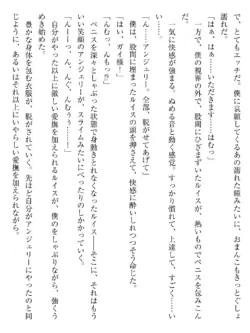 で、とてもエッチだ。僕に してくるあの濡れたみたいに、おまんこもきっとぐしょ
「はぁ、はぁ……いただきます……はむっ」
一方で、僕の視界の外で、股間にひざまずいたルイスが、熱いものでペニスを包みこん
だ。
一気に快感が強まる。ぬめる舌と動く感覚。すっかり慣れて、上達して、すごく……い
い……。
「ん……アンジェリー。全部、脱がせてあげて」
「んむっ。んもっ」
「はい、ガイ様」
僕は、股間に埋まったルイスの頭を押さえて、快感に酔いしれつつ命じた。
ペニスを深々としゃぶった状態で身動きとれなくなったルイス――そこに、それはもう
いい笑顔のアンジェリーが、スライムみたいにべったりのしかかっていく。
「んーーっ、ん、んぐ、んむぅぅっ！」
自分がやった以上に厳しい愛撫を加えられるルイスが、僕のをしゃぶりながら、強くう
めき始める。
豊かな身体を包む衣服が、脱がされていく。先ほど自分がアンジェリーにやったのと同
じように、あるいはそれ以上にいやらしい愛撫を加えられながら。